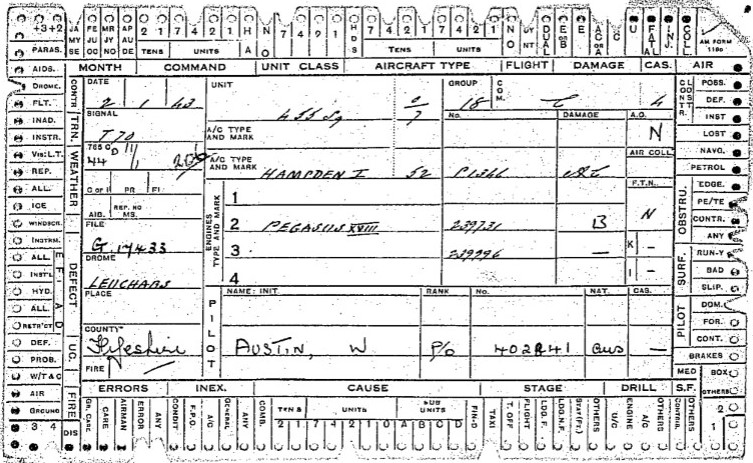 +3+2 JA FE MR AP 2 1 7 4 2 1 H N 7 4 9 1 HDS 7 4 2 1 7 4 2 1 NO DY NT DUAL E or B E E AC or A C U FATAL INJ. COLL AM FORM 1180
MY JU JY AU
SE OC NO DE TENS UNITS A O TENS UNITS
PARAS. MONTH COMMAND UNIT CLASS AIRCRAFT TYPE FLIGHT DAMAGE CAS. AIR
AIDS.
DROME. CONTR DATE UNIT GROUP COM. CLOUD POSS.
FLT. 2 1 43 455 Sq 18 C 4 DEF.
INAD. TRN. SIGNAL No. DAMAGE A.O. INST
INSTR. T70 A/C TYPE AND MARK N LOST
VIS: L.T. 765 C 44 AIR COLL NAVG.
REP. WEATHER A/C TYPE AND MARK HAMPDEN I 52 P1346 PETROL
ALL. C or I PR FI F.T.N. OBSTRU. EDGE.
ICE AIB. REP. NO MS. ENGINES TYPE AND MARK 1 PE/TE
WINDSCR. FILE 2 PEGASUS XVIII 239731 B N CONTR.
INSTRM. G. 17433 ANY
ALL. DEFECT DROME 3 239996 K – SURF. RUN-Y
INST'L LEUCHARS 4 I – BAD
HYD. PLACE NAME: INIT. RANK No. NAT. CAS. SLIP.
ALL. PILOT DOM.
RETR'CT COUNTY FOR.
DEF. UC. Fifeshire PILOT AUSTIN, W P/O 402841 Aus – CONT.
PROB. FIRE BRAKES
W/T & C MED BOX
AIR FIRE ERRORS INEX. CAUSE STAGE DRILL S.F. OTHERS
GROUND GR. CARE CARE AIRMAN ERROR ANY CONDIT F.P.O. A/C GENERAL ANY COMB. TENS UNITS SUB UNITS FIN-D TAXI T. OFF FLIGHT LDG. F. LDG. N.F. STAT (Fr.) OTHERS U/C ENGINE A/C OTHERS CONTRIB. OTHERS 2
3 4 DIS 2 1 7 4 2 1 7 4 2 1 A B C D 1